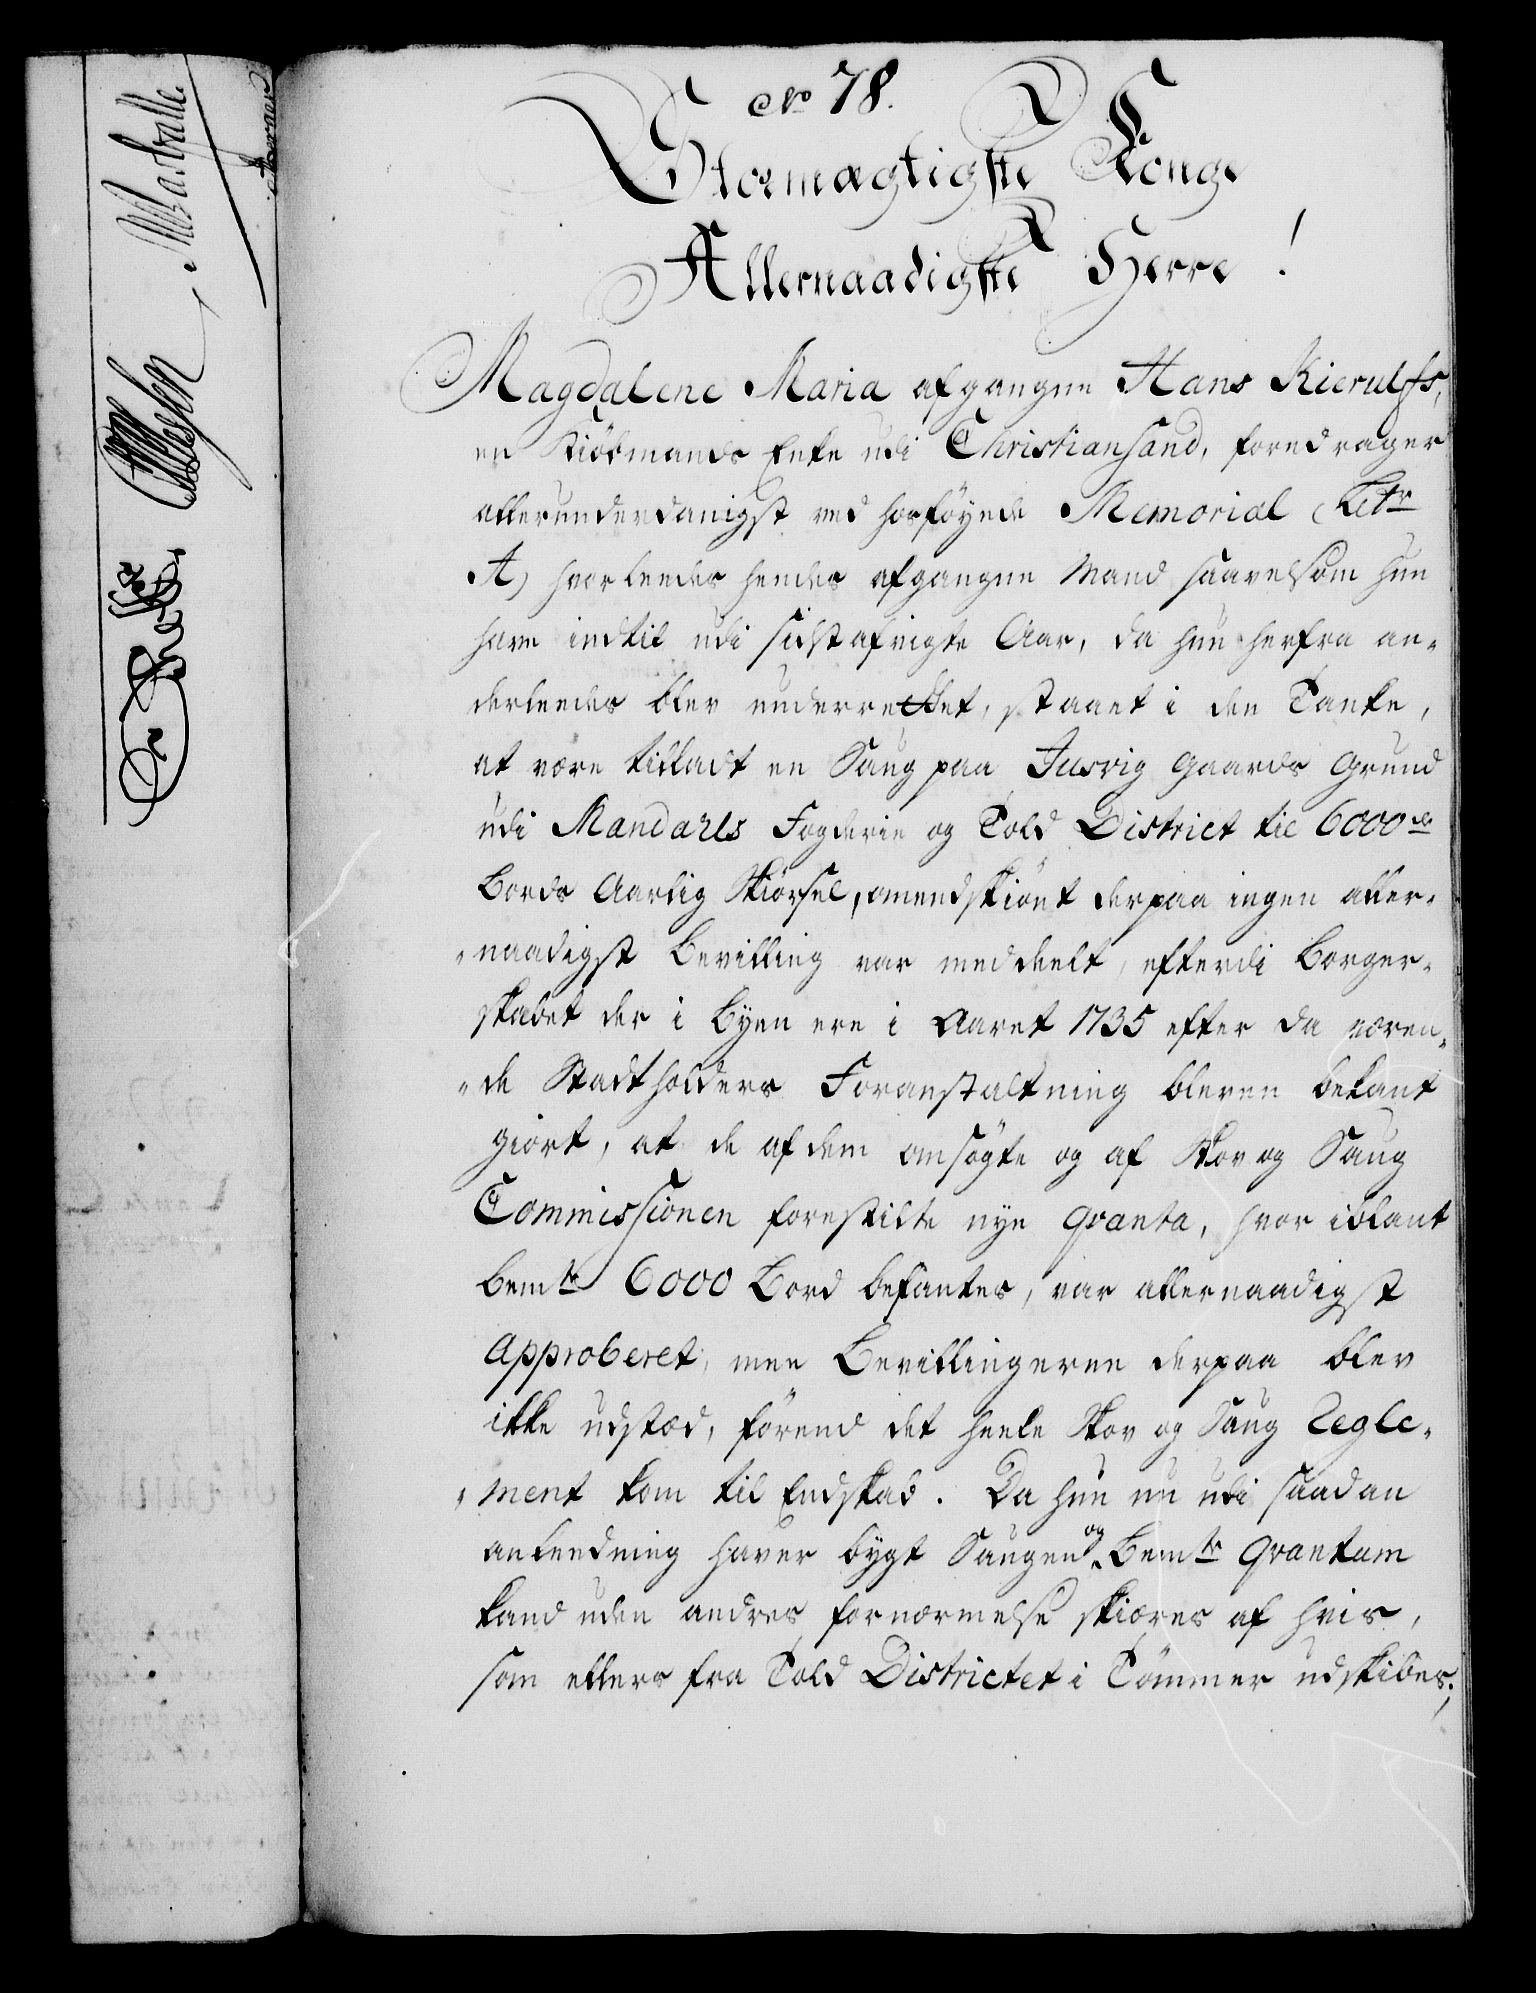 No 78.
Stormægtigste Konge
Allernaadigste Herre!
Magdalene Maria afgangne Hans Kierulfs,
en Kiöbmands Enke udi Christiansand, foredrager
allerunderdanigst ved hosföyede Memorial (Litr
A) hvorleedes hendes afgangne Mand saavelsom hun
have indtil udi sidstafvigte Aar, da hun herfra an-
derleedes blev underrettet, staaet i den Tanke,
at være tilladt en Saug paa Jusvig Gaards Grund
udi Mandahls Fogderie og Told District til 6000de
Bords Aarlig Skiörsel, omendskiönt derpaa ingen aller-
naadigst Bevilling var meddeelt, efterdi Borger-
skabet der i Byen ere i Aaret 1735 efter da væren-
de Stadtholders Foranstaltning bleven bekant
giort, at de af dem ansögte og af Skov og Saug
Commissionen forestilte nye Qvanta, hvor iblant
bemte 6000 Bord befantes, var allernaadigst
approberet, men Bevillingerne derpaa blev
ikke udstæd, förend det heele Skov og Saug Regle-
ment kom til Endskab. Da hun nu udi saadan
anleedning haver bygt Saugen og Bemte Qvantum
kand uden andres fornærmelse skiæres af hvis,
som ellers fra Told Districtet i Tömmer udskibes;